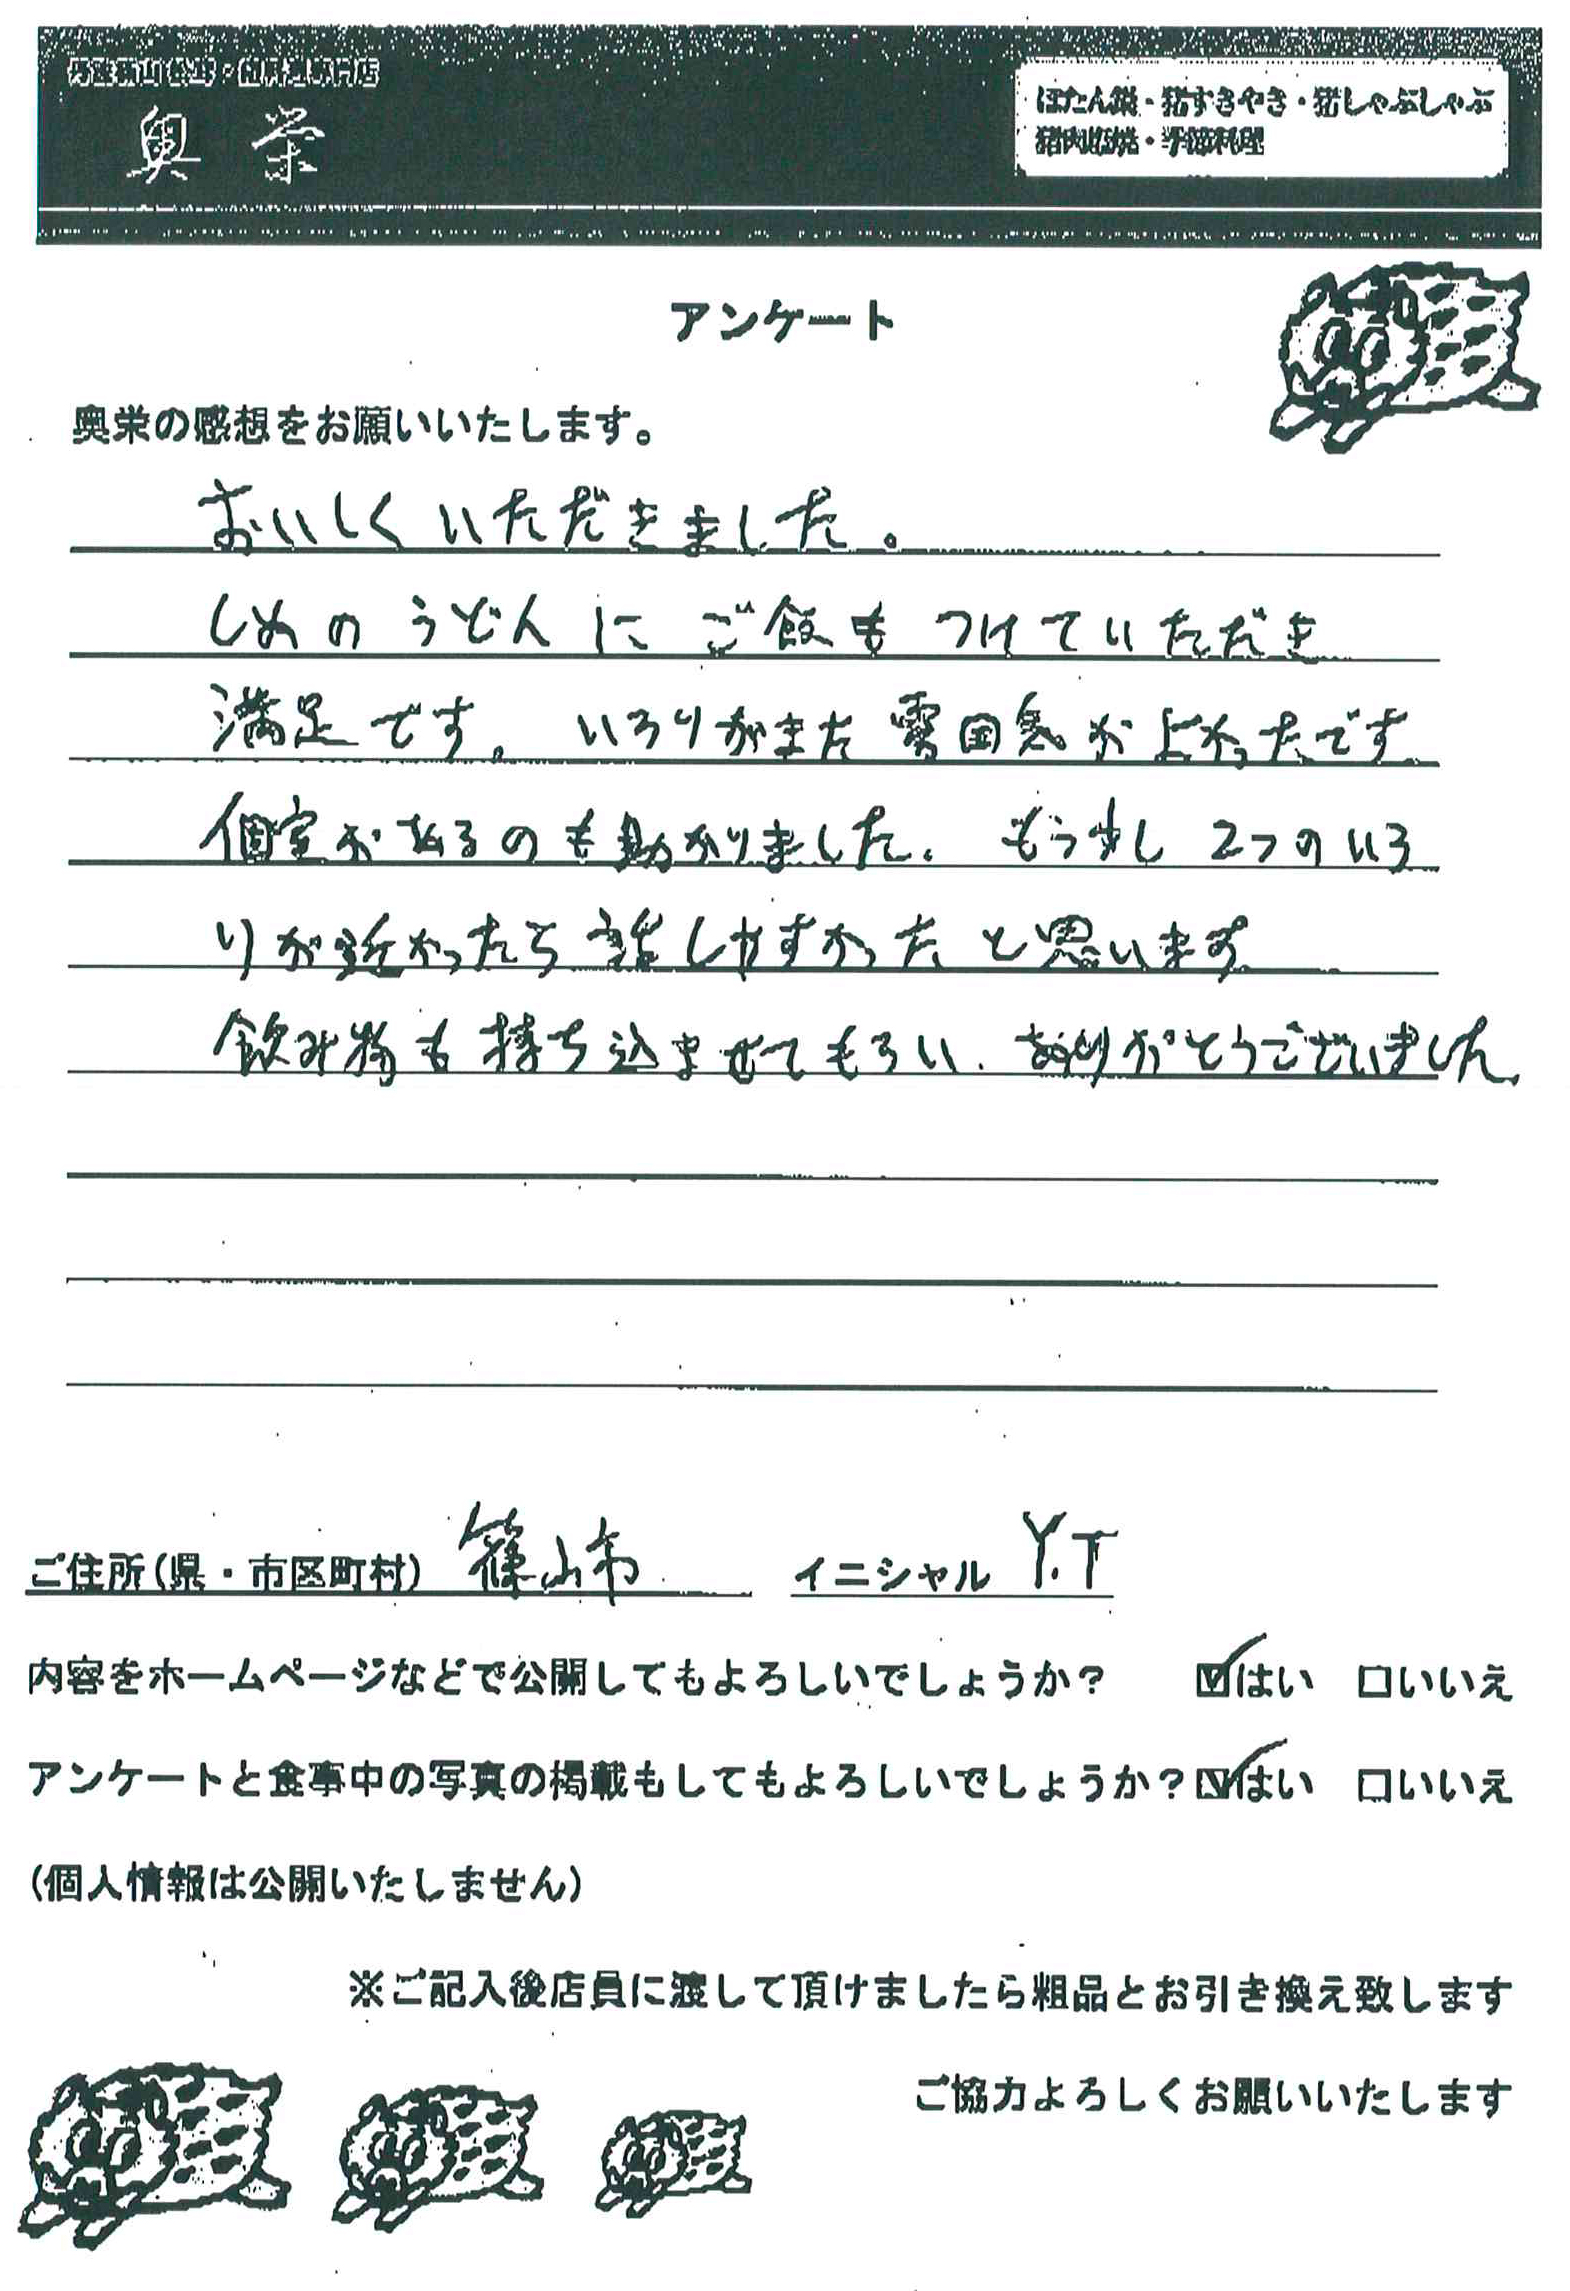 奥栄
ぼたん鍋・猪すきやき・猪しゃぶしゃぶ
・季節料理
アンケート
奥栄の感想をお願いいたします。
おいしくいただきました。
しめのうどんにご飯もつけていただき
満足です。いろりがまた雰囲気が よかったです
個室があるのも助かりました。もう少し2つのいろ
りが近かったら話しやすかったと思います
飲み物も持ち込ませてもらい、ありがとうございました。
ご住所(県・市区町村) 篠山市 イニシャル Y.T
内容をホームページなどで公開してもよろしいでしょうか? ☑はい □いいえ
アンケートと食事中の写真の掲載もしてもよろしいでしょうか?☑はい □いいえ
(個人情報は公開いたしません)
※ご記入後店員に渡して頂けましたら粗品とお引き換え致します
ご協力よろしくお願いいたします